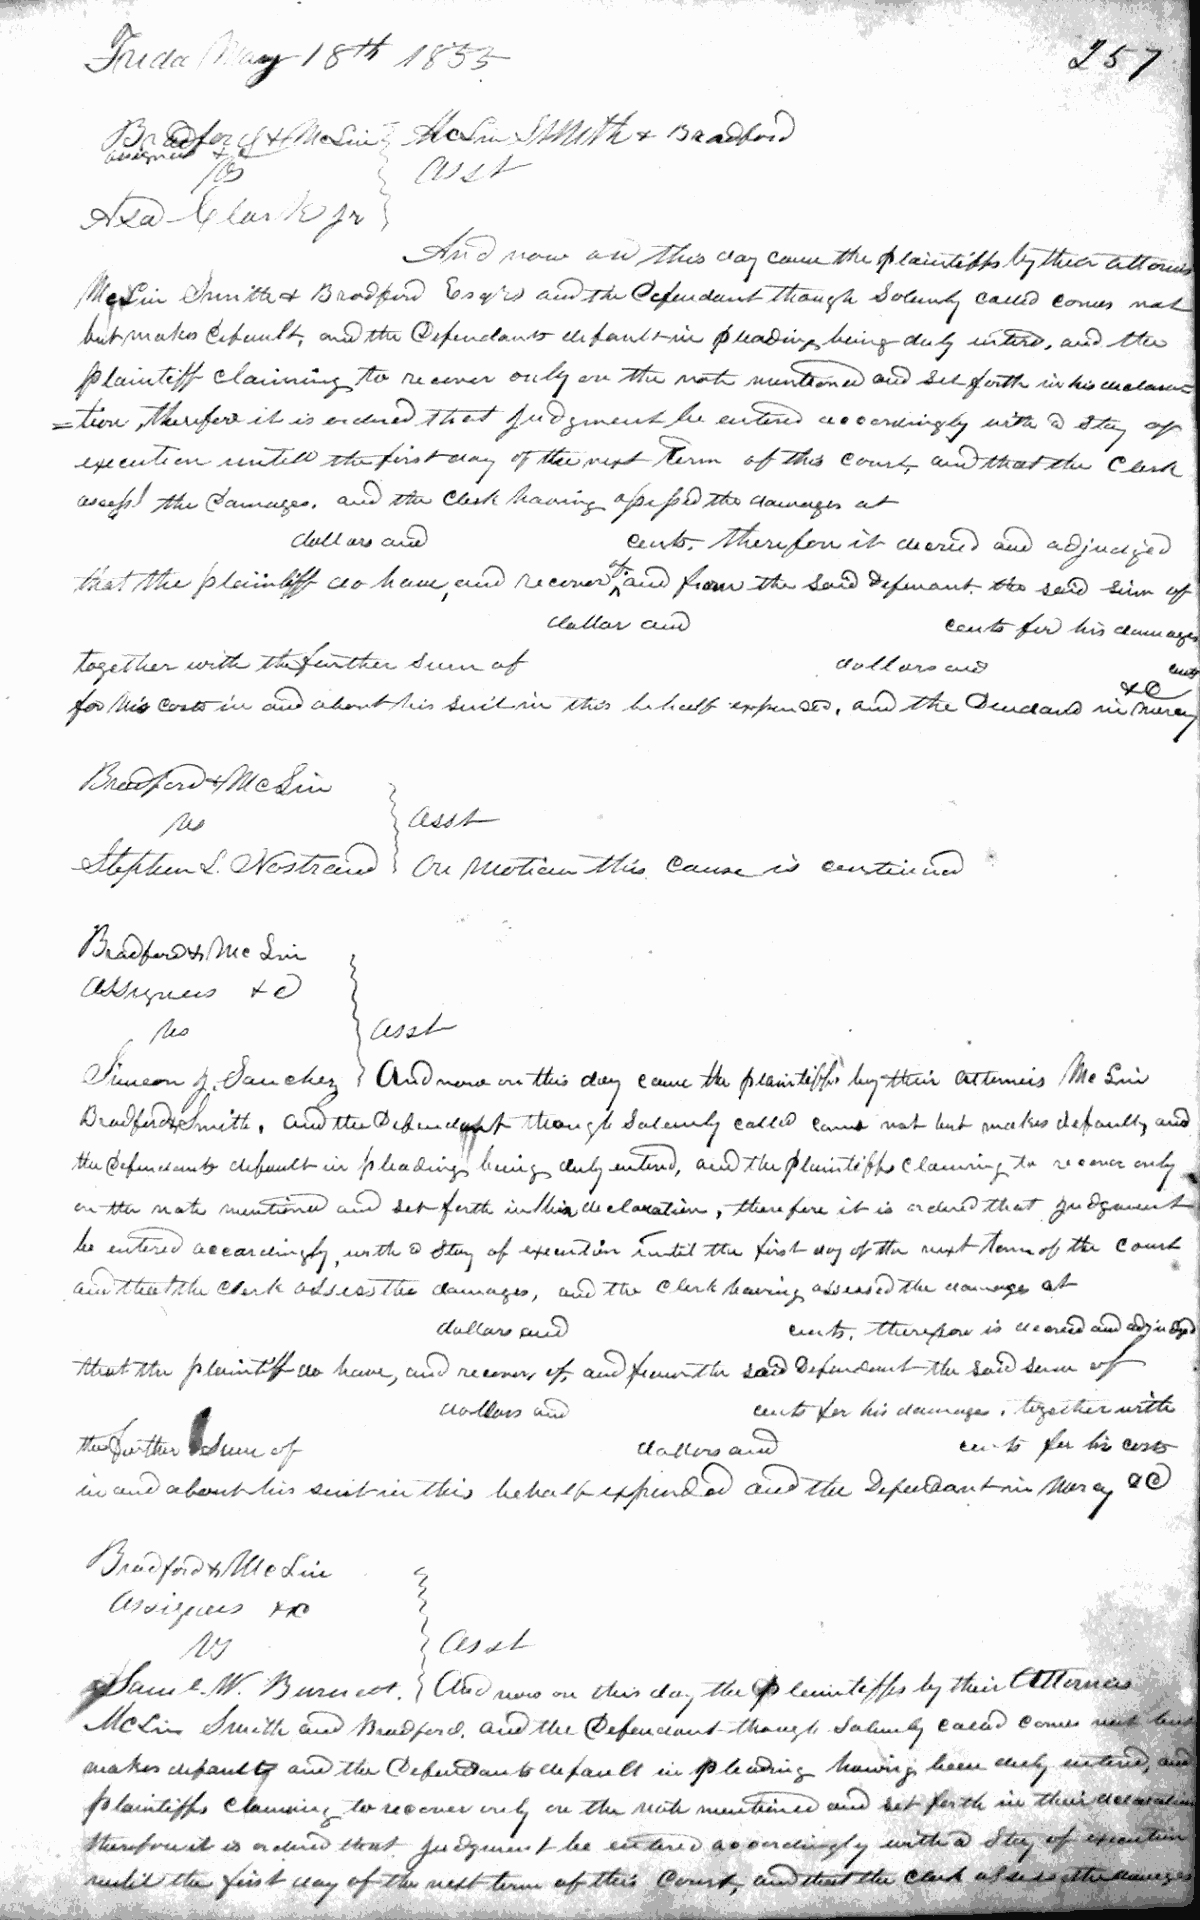 Frida May 18th 1855
257
Bradford & McLin
assignees &c
vs
Asa Clark Jr
McLin Smith & Bradford
Asst
And now on this day came the plaintiffs by their attornies
McLin Smith & Bradford Esqrs and the Defendant though Solemly called comes not
but makes default, and the Defendants default in pleading being duly entered, and the
plaintiff claiming to recover only on the note mentioned and set forth in his declara=
=tion, therefore it is ordered that Judgment be entered accordingly with a Stay of
execution untill the first day of the next Term of this Court, and that the Clerk
assess the damages, and the clerk having assessed the damages at
dollars and cents, therefore it decreed and adjudged
that the plaintiff do have, and recover of and from the said Defendant, the said sum of
dollar and cents for his damages
together with the further sum of dollars and cents
for his costs in and about his suit in this behalf expended, and the in mercy &c
Bradford & McLin
vs
Stephen L. Nostrand
Asst
On Motion this cause is continued
Bradford & McLin
Assignees &c
vs
Asst
Simeon J. Sanchez And now on this day came the plaintiffs by their attorneis McLin
Bradford & Smith, and the Defendant though Solemly called came not but makes default, and
the Defendants default in pleading being duly entered, and the plaintiffs claiming to recover only
on the note mentioned and set forth in this declaration, therefore it is ordered that Judgment
be entered accordingly, with a Stay of execution until the first day of the next term of the Court
and that the clerk assess the damages, and the Clerk having assessed the damages at
dollars and cents, therefore is decreed and adjudged
that the plaintiff do have, and recover, of, and from the said Defendant the said sum of
dollars and cents for his damages, together with
the further sum of dollars and cents for his costs
in and about his suit in this behalf expended and the Defendant in Mercy &c
Bradford & McLin
Assignees &c
vs
Asst
Saml. W. And now on this day the plaintiffs by their Attorneis
McLin Smith and Bradford, and the Defendant though Solemly called comes not but
makes default, and the Defendants default in pleading having been duly entered, and
plaintiffs claiming to recover only on the note mentioned and set forth in their declaration
therefore it is ordered that Judgment be entered accordingly with a Stay of execution
until the first day of the next term of this Court, and that the clerk assess the damages